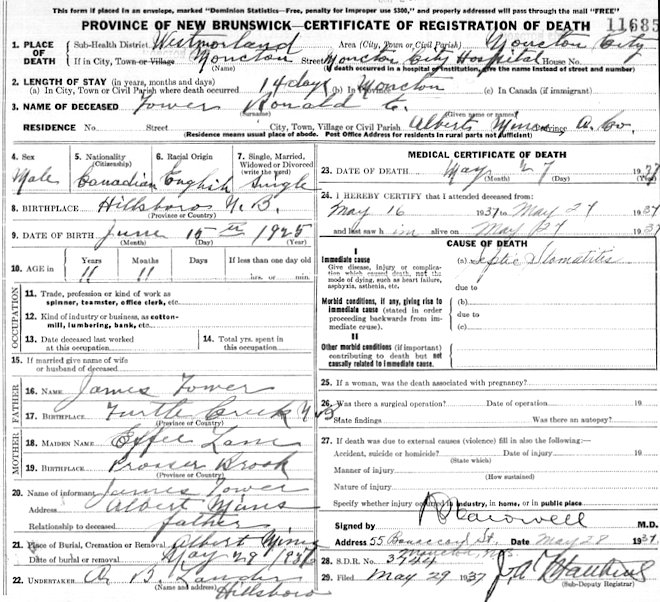 This form if placed in an envelope, marked "Dominion Statistics—Free, penalty for improper use $300," and properly addressed will pass through the mail "FREE"
PROVINCE OF NEW BRUNSWICK—CERTIFICATE OF REGISTRATION OF DEATH
11685
1. PLACE OF DEATH
Sub-Health District Westmorland Area (City, Town or Civil Parish) Moncton City
If in City, Town or Village Moncton Street Moncton City Hospital House No.
(Name) (If death occurred in a hospital or institution, give the name instead of street and number)
2. LENGTH OF STAY (in years, months and days)
(a) In City, Town or Civil Parish where death occurred 14 days (b) In Province Moncton (c) In Canada (if immigrant)
3. NAME OF DECEASED Tower Ronald C.
(Surname) (Given name or names)
RESIDENCE No. Street City, Town, Village or Civil Parish Alberts Mines Province A. Co.
(Residence means usual place of abode. Post Office Address for residents in rural parts not sufficient)
4. Sex 5. Nationality (Citizenship) 6. Racial Origin 7. Single, Married, Widowed or Divorced (write the word)
Male Canadian English Single
8. BIRTHPLACE Hillsboro N.B.
(Province or Country)
9. DATE OF BIRTH June 15th 1925
(Month) (Day) (Year)
10. AGE in Years Months Days If less than one day old
11 11 hrs. or min.
OCCUPATION
11. Trade, profession or kind of work as spinner, teamster, office clerk, etc.
12. Kind of industry or business, as cotton-mill, lumbering, bank, etc.
13. Date deceased last worked at this occupation
14. Total yrs. spent in this occupation
15. If married give name of wife or husband of deceased
FATHER
16. NAME James Tower
17. BIRTHPLACE Turtle Creek N B
(Province or Country)
MOTHER
18. MAIDEN NAME Effie Lane
19. BIRTHPLACE Prosser Brook
(Province or Country)
20. Name of informant James Tower
Address Albert Mines
Relationship to deceased father
21. Place of Burial, Cremation or Removal Albert Mines
Date of burial or removal May 29 1937
22. UNDERTAKER A. B. Lander
(Name and address) Hillsboro
MEDICAL CERTIFICATE OF DEATH
23. DATE OF DEATH May 27 1937
(Month) (Day)
24. I HEREBY CERTIFY that I attended deceased from:
May 16 1937 to May 27 1937
and last saw him alive on May 27 1937
CAUSE OF DEATH
I
Immediate cause (a) Septic Stomatitis
Give disease, injury or complication which caused death, not the mode of dying, such as heart failure, asphyxia, asthenia, etc.
due to
Morbid conditions, if any, giving rise to immediate cause (stated in order proceeding backwards from immediate cause).
(b)
due to
(c)
II
Other morbid conditions (if important) contributing to death but not causally related to immediate cause.
25. If a woman, was the death associated with pregnancy?
26. Was there a surgical operation? Date of operation 19
State findings Was there an autopsy?
27. If death was due to external causes (violence) fill in also the following:—
Accident, suicide or homicide? Date of injury 19
(State which)
Manner of injury
(How sustained)
Nature of injury
Specify whether injury occurred in industry, in home, or in public place
Signed by M.D.
Address 55 St. Date May 28 1937
Moncton, N.B.
28. S.D.R. No. 3744
29. Filed May 29 1937
(Sub-Deputy Registrar)